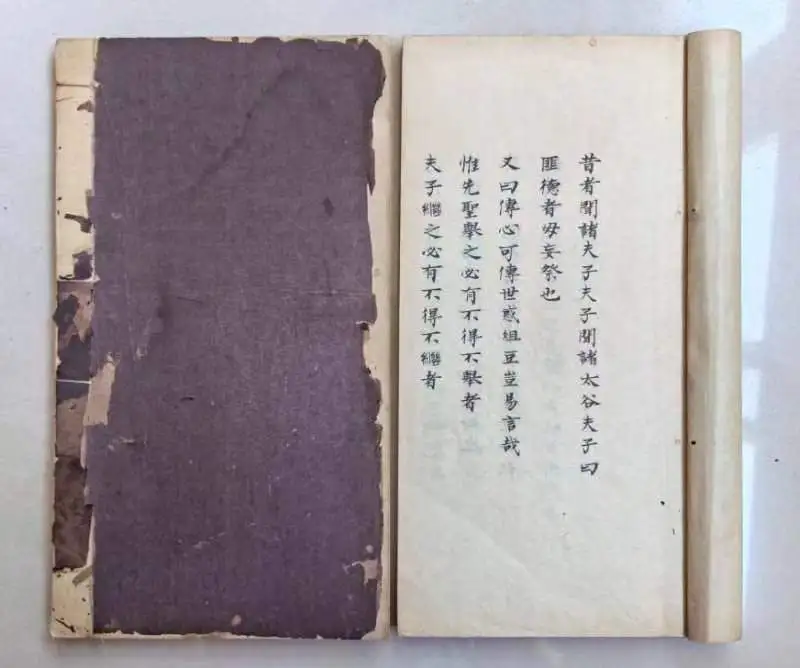 昔者聞諸夫子夫子聞諸太谷夫子曰
匪德者毋妄祭也
又曰傳心可傳世惑俎豆豈易言哉
惟先聖舉之必有不得不舉者
夫子繼之必有不得不繼者